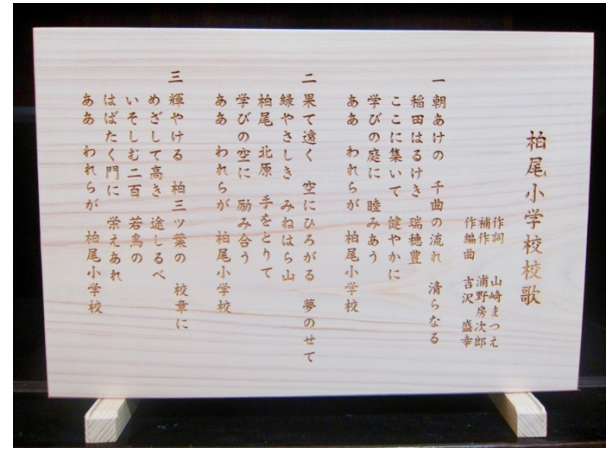 柏尾小学校校歌
作詞 山崎まつえ
補作 浦野房次郎
作編曲 吉沢盛幸
一 朝あけの 千曲の流れ 清らなる
稲田はるけき 瑞穂豊
ここに集いて 健やかに
学びの庭に 睦みあう
ああ われらが 柏尾小学校
二 果て遠く 空にひろがる 夢のせて
緑やさしき みねはら山
柏尾 北原 手をとりて
学びの空に 励み合う
ああ われらが 柏尾小学校
三 輝やける 柏三ツ葉の 校章に
めざして高き 途しるべ
いそしむ二百 若鳥の
はばたく門に 栄えあれ
ああ われらが 柏尾小学校